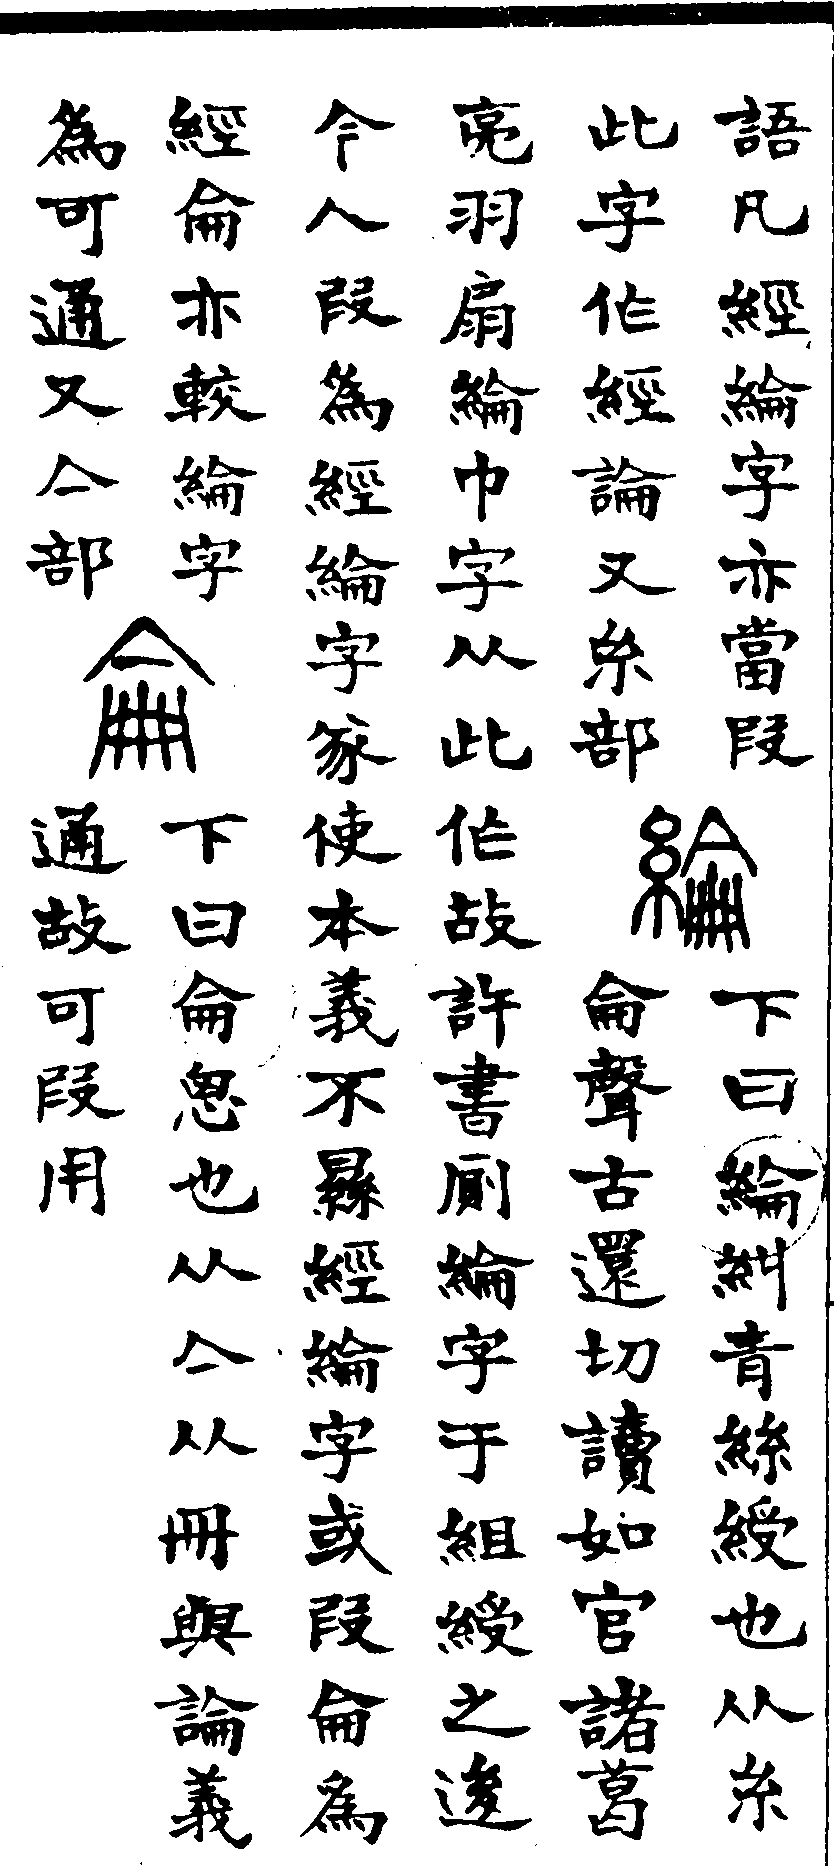 語凡經綸字亦當叚
此字作經論又糸部
綸
下曰綸糾青絲綬也从糸
侖聲古還切讀如官諸葛
亮羽扇綸巾字从此作故許書廁綸字于組綬之後
今人叚為經綸字㒸使本義不㬎經綸字或叚侖為
經侖亦較綸字
為可通又亼部
侖
下曰侖恖也从亼从冊與論義
通故可叚用